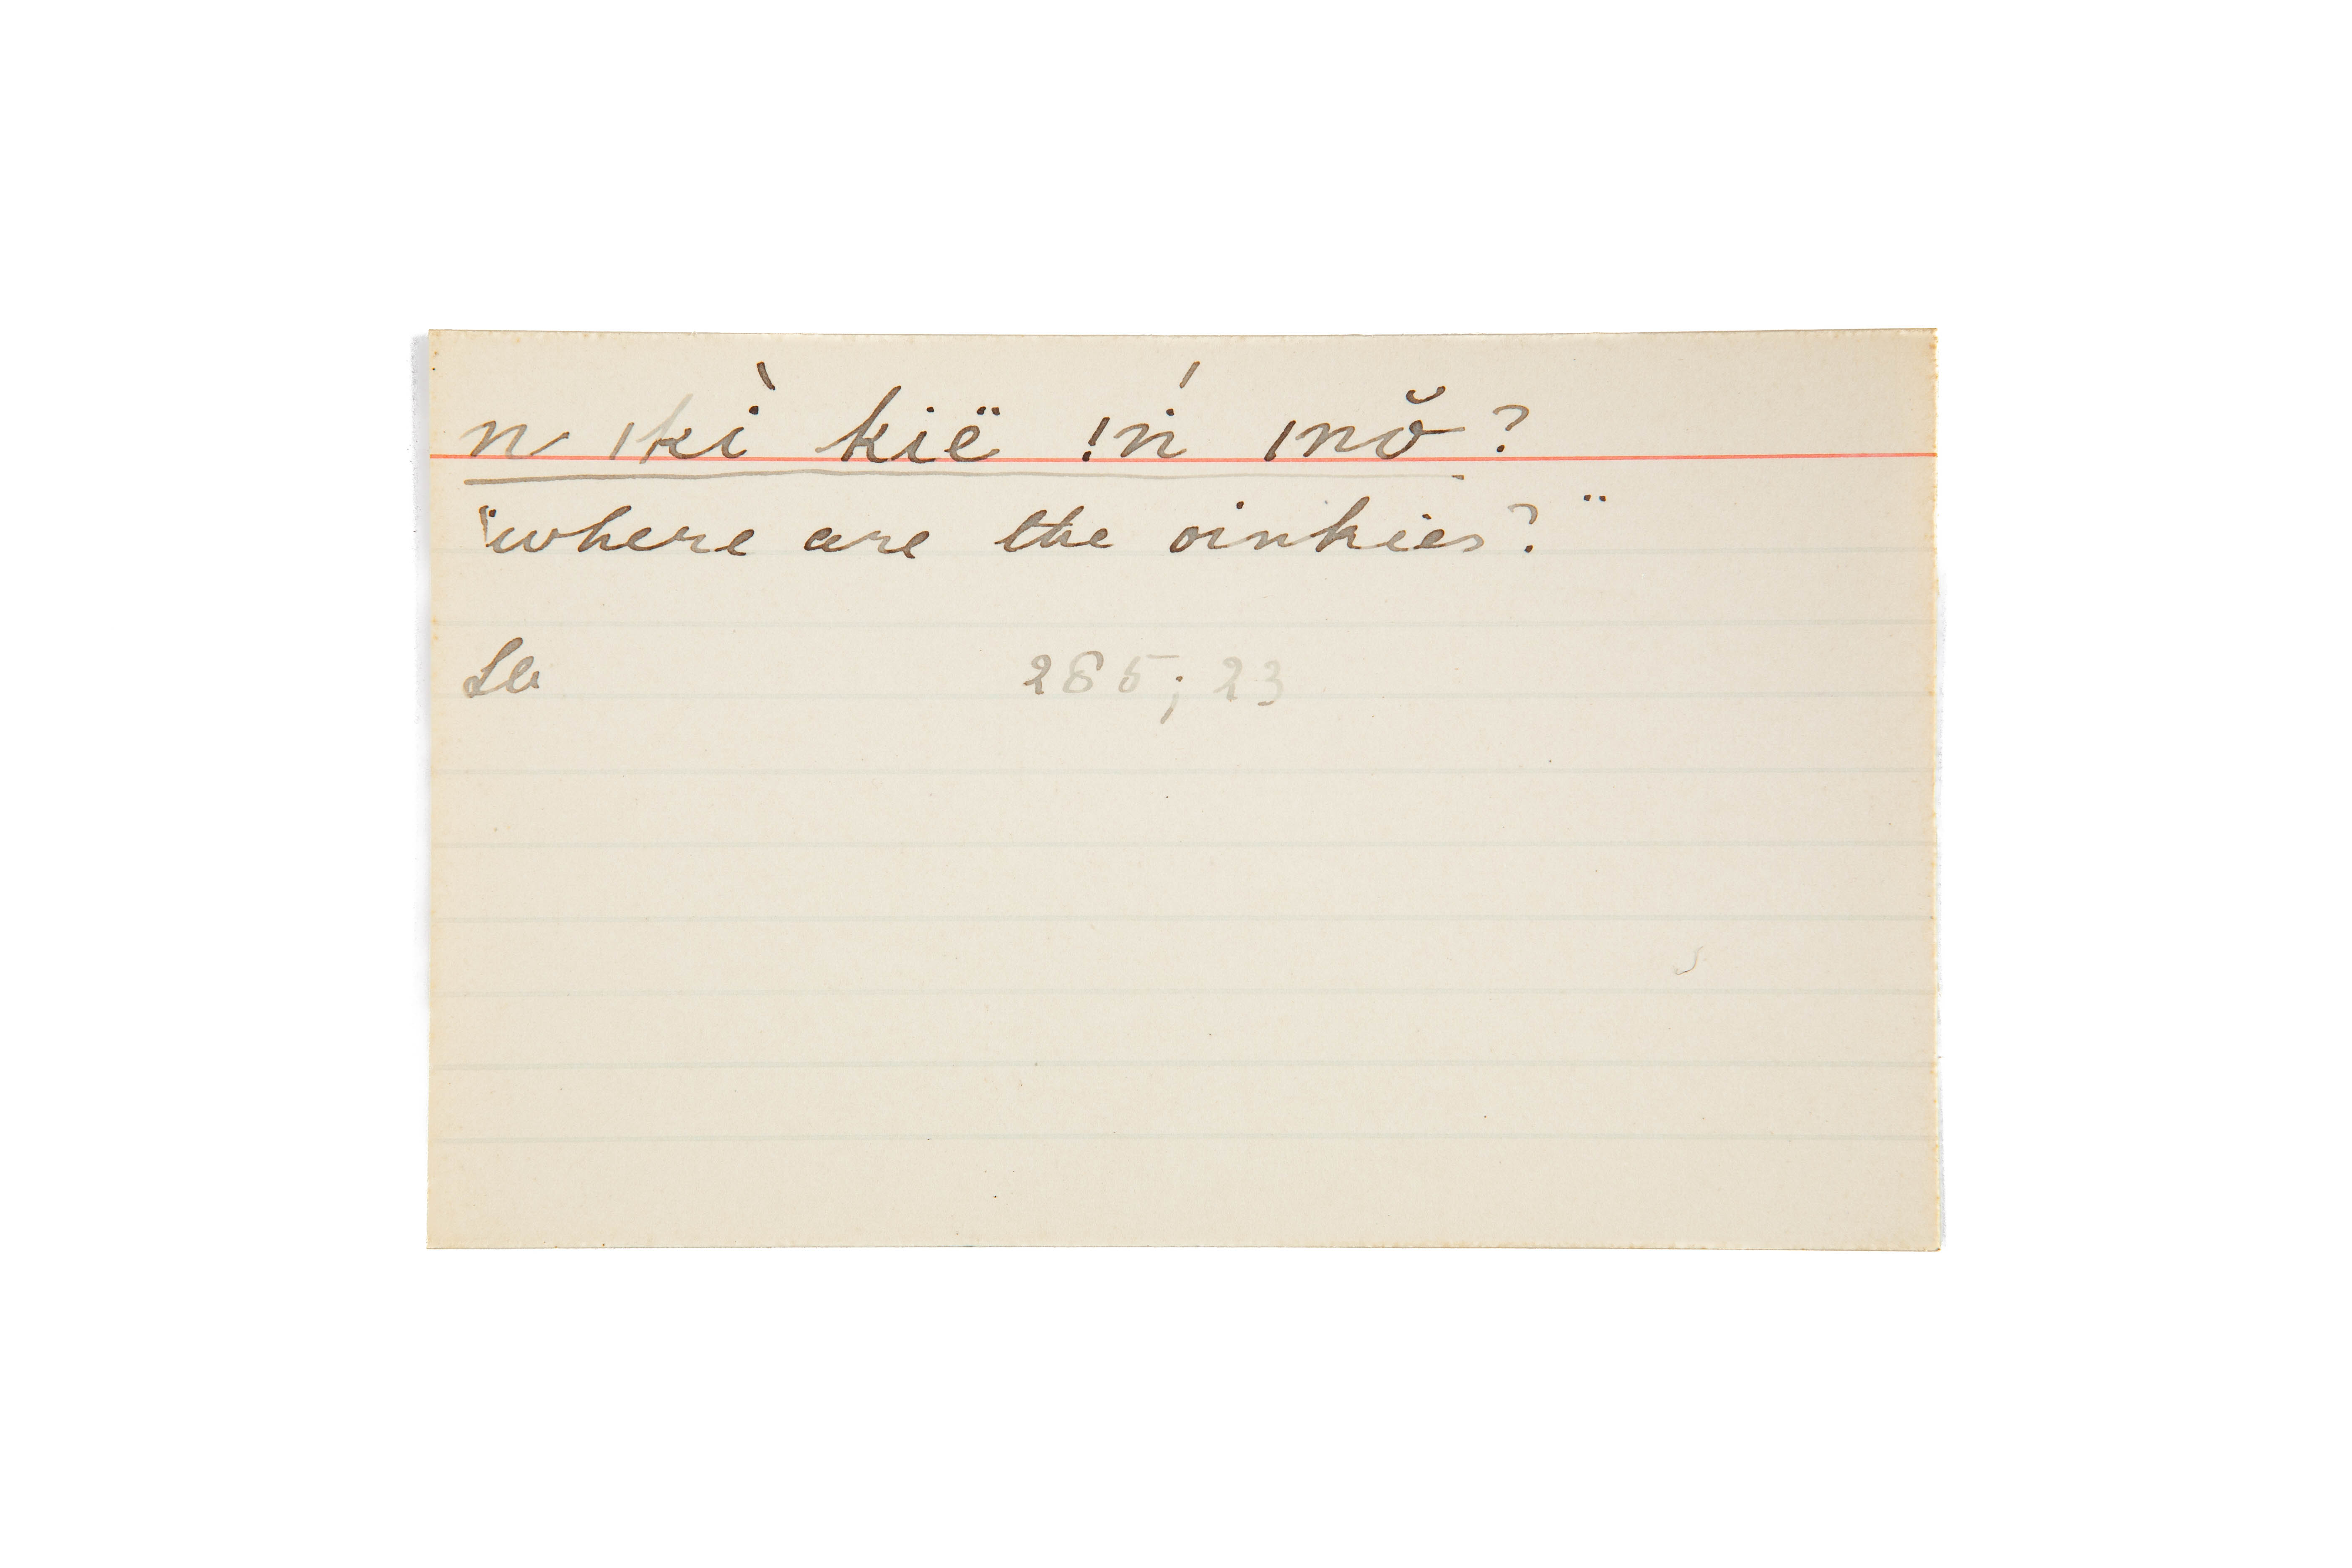 n ǀkì kië ǃń ǀnŏ?
"where are the oinkies?"
Lb 285; 23